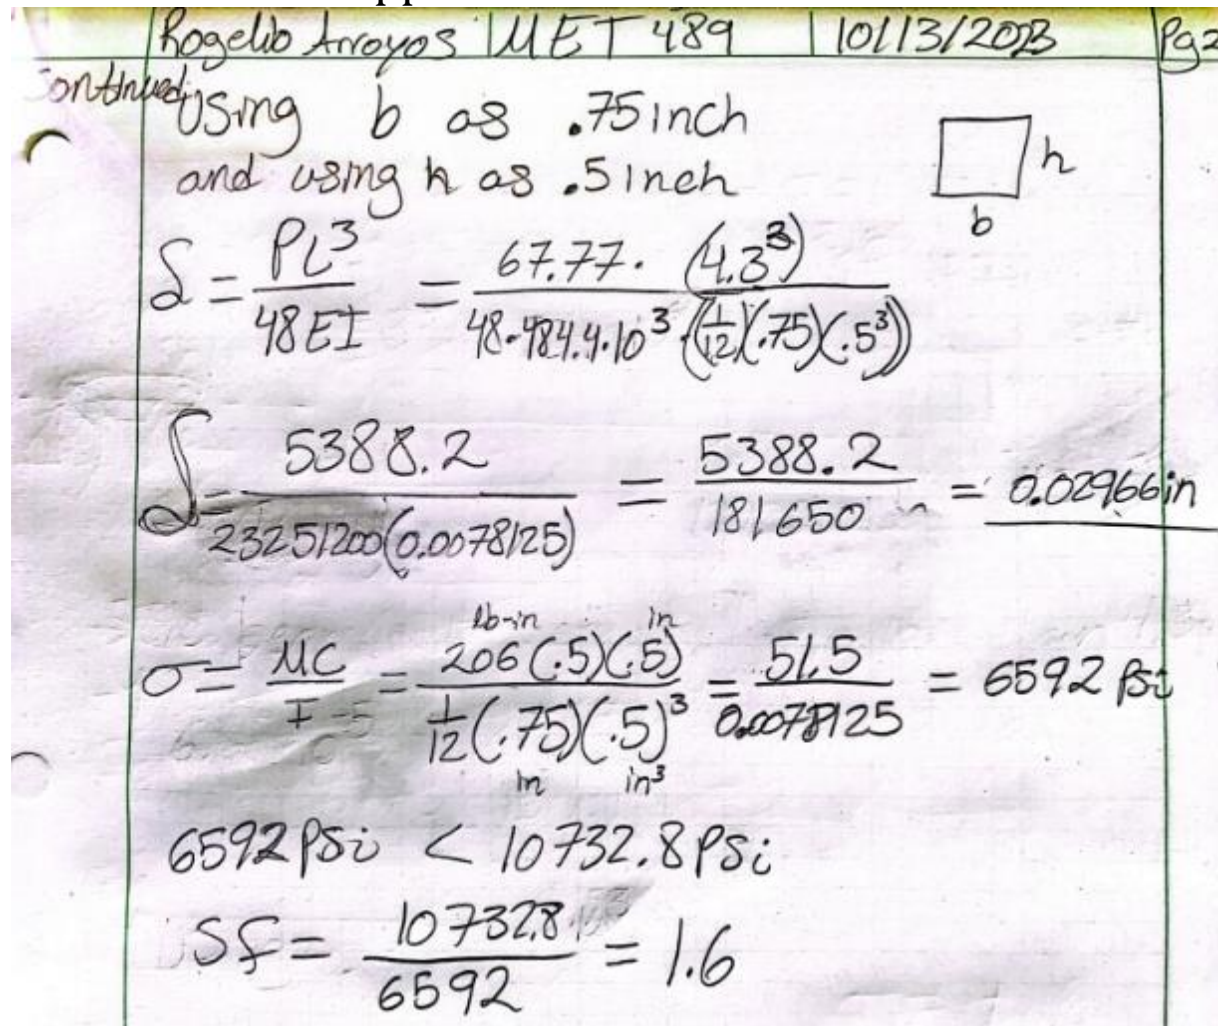 Rogelio Arroyos | MET 489 | 10/13/2023 Pg2
Continued:
Using b as .75 inch
and using h as .5 inch
h
b
δ = PL³/48EI = 67.77 · (4.3³)/48·484.4·10³·((1/12)(.75)(.5³))
δ = 5388.2/23251200(0.0078125) = 5388.2/181650 = 0.02966 in
lb-in in
σ = MC/I = 206(.5)(.5)/(1/12)(.75)(.5)³ = 51.5/0.0078125 = 6592 psi
in in³
6592 psi < 10732.8 psi
Sf = 10732.8/6592 = 1.6